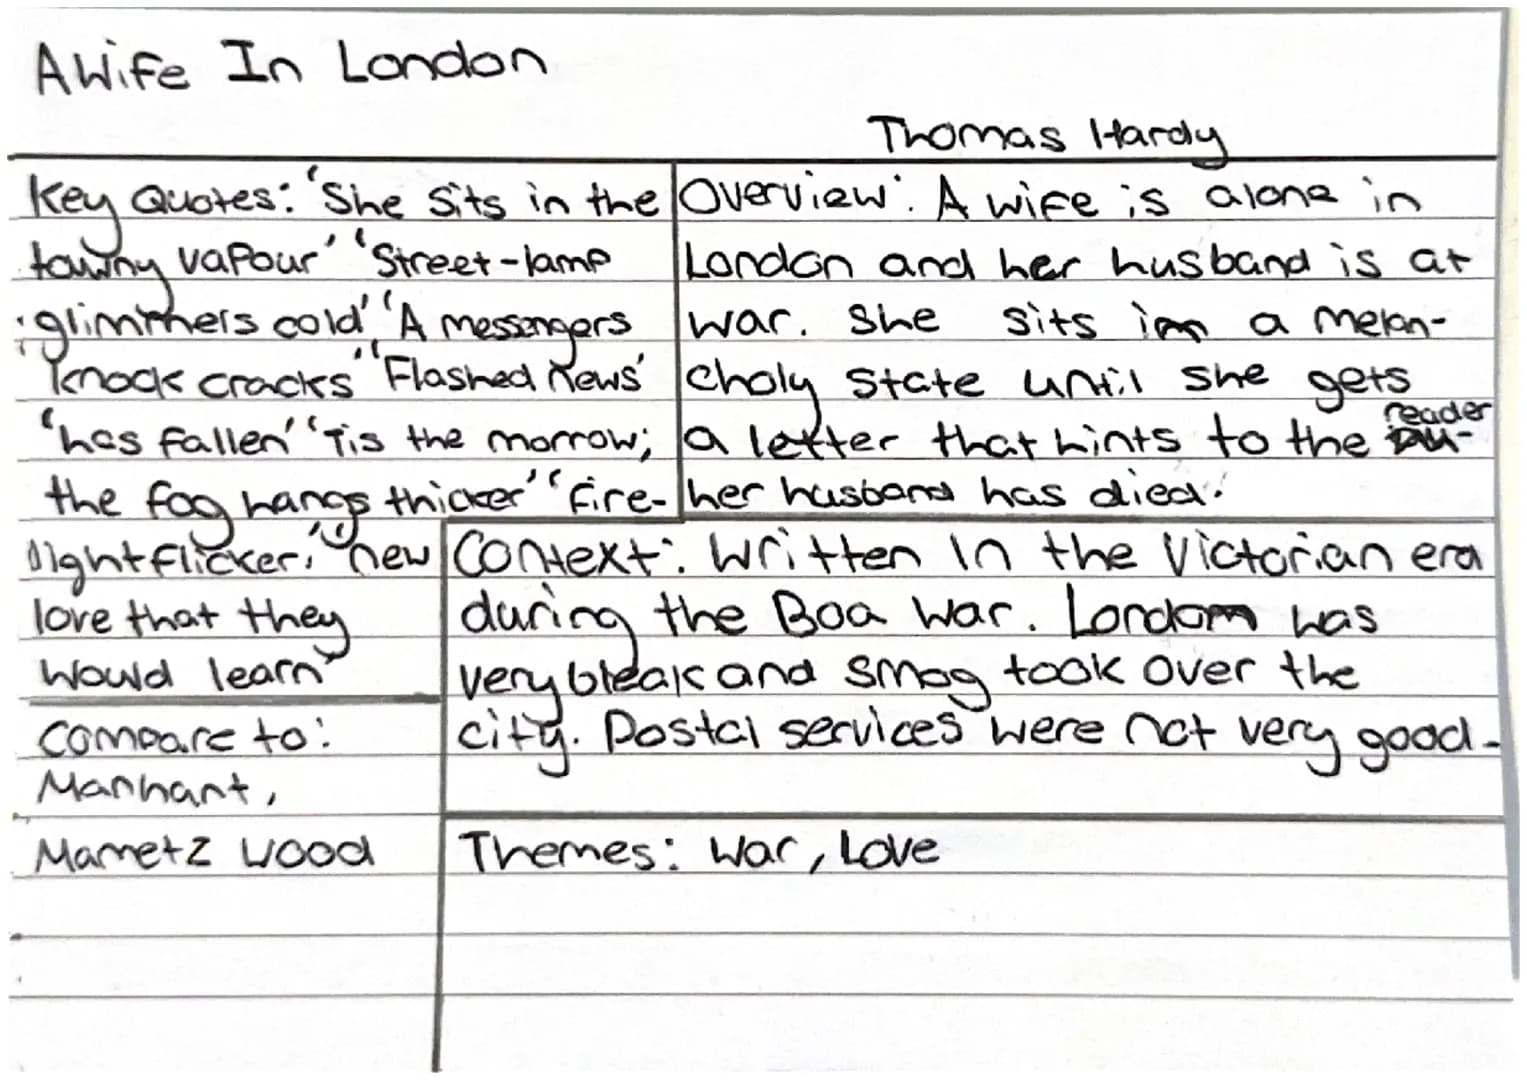 A Wife In London
Thomas Hardy
Key Quotes: 'She sits in the
tawny vapour' 'Street-lamp
glimmers cold' 'A messengers
knock cracks' 'Flashed news'
'has fallen' 'Tis the morrow;
the fog hangs thicker' 'fire-
light flicker.' 'new
love that they
would learn'
Compare to:
Manhant,
Mametz Wood
Overview: A wife is alone in
London and her husband is at
war. She sits in a melan-
choly state until she gets
a letter that hints to the reader
her husband has died.
Context: Written in the Victorian era
during the Boa War. London was
very bleak and smog took over the
city. Postal services were not very good.
Themes: War, Love